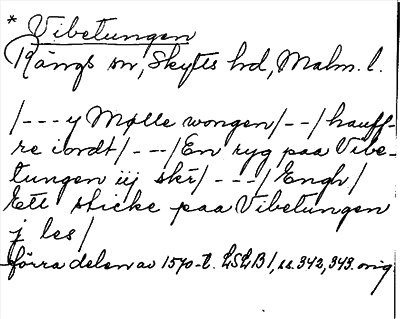 * Vibetungen
Rängs sn, Skytts hd, Malm. l.
/--- y Mølle wongen/--/hauff-
re iordt/---/En ryg paa Vibe-
tungen iij skr/---/Engh/
Ett sticke paa Vibetungen
j les/
förra delen av 1570-t. LSLB 1, ss. 342, 343. orig